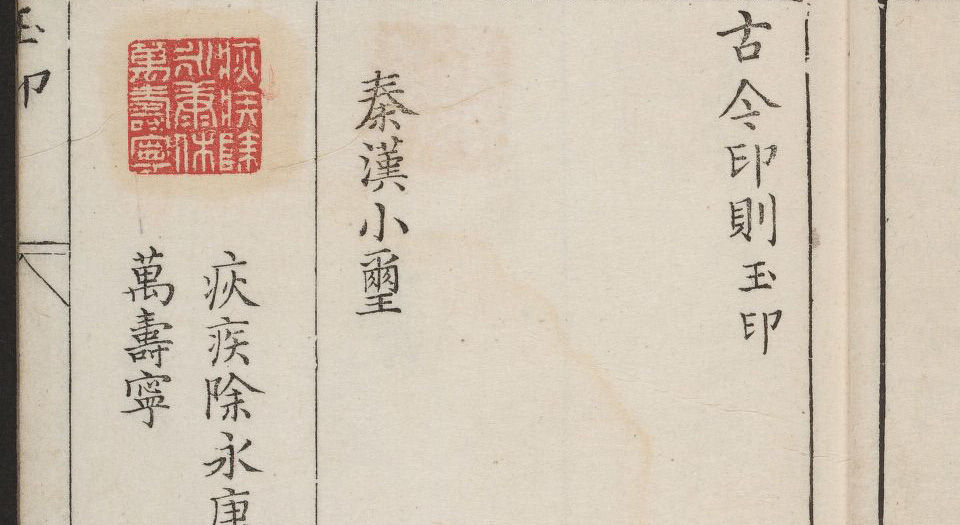 古今印則玉印
秦漢小璽
疢疾除
永康休
萬壽寧
疢疾除永康
萬壽寧